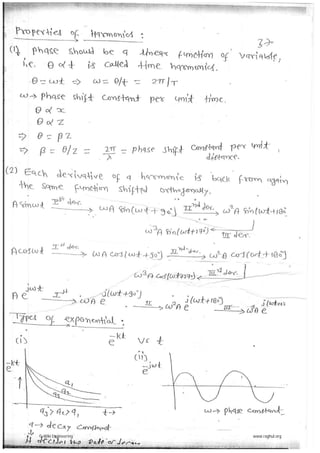 Properties of Harmonics :
37
(1) phase should be a linear function of variable,
i.e. θ ∝ t is called time harmonics.
θ = ωt ⇒ ω = θ/t = 2π/T
ω → phase shift constant per unit time.
θ ∝ x
θ ∝ z
⇒ θ = βz
⇒ β = θ/z = 2π/λ = phase shift constant per unit distance.
(2) Each derivative of a harmonic is back from again
the same function shifted orthogonally.
A sinωt Ist der. → ωA sin(ωt + 90°) IInd der. → ω²A sin(ωt+180
ω³A sin(ωt+270) ← III der.
A cosωt Ist der. → ωA cos(ωt + 90°) IInd der. → ω²A cos(ωt + 180)
ω³A cos(ωt+270) ← IIIrd der.
A e^jωt Ist → ωA e^j(ωt+90) II → ω²A e^j(ωt+180) III → ω³A e
Types of exponential :
(i) e^-kt Vs t
(ii) e^jωt
e^-kt
a1
a2
a3
a3 > a2 > a1 t →
ω → phase constant
a → decay constant
It decides the rate of
www.raghul.org